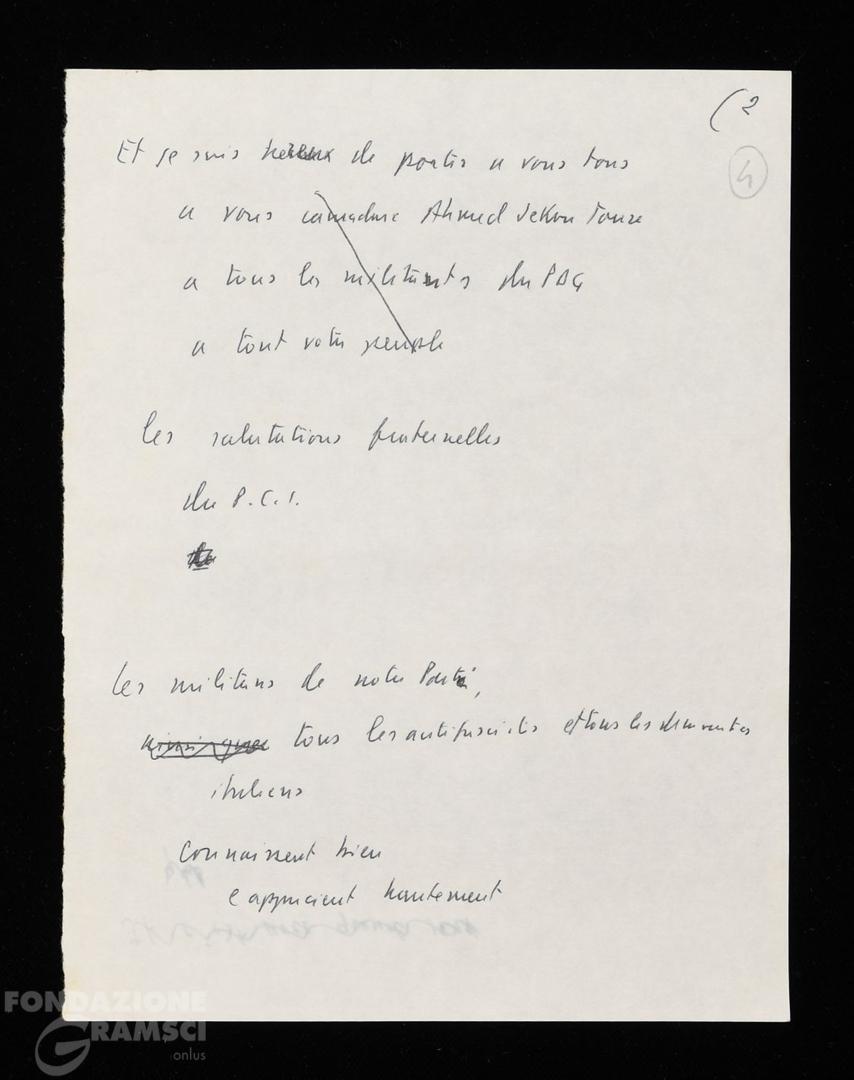 (2
4
Et je suis heureux de porter a vous tous
a vous camarade Ahmed Sekou Toure
a tous les militants du PDG
a tout votre peuple
les salutations fraternelles
du P.C.I.
Les militans de notre Parti,
ainsi que tous les antifascistes et tous les democrates
italiens
connaissent bien
e apprecient hautement
FONDAZIONE
GRAMSCI
onlus